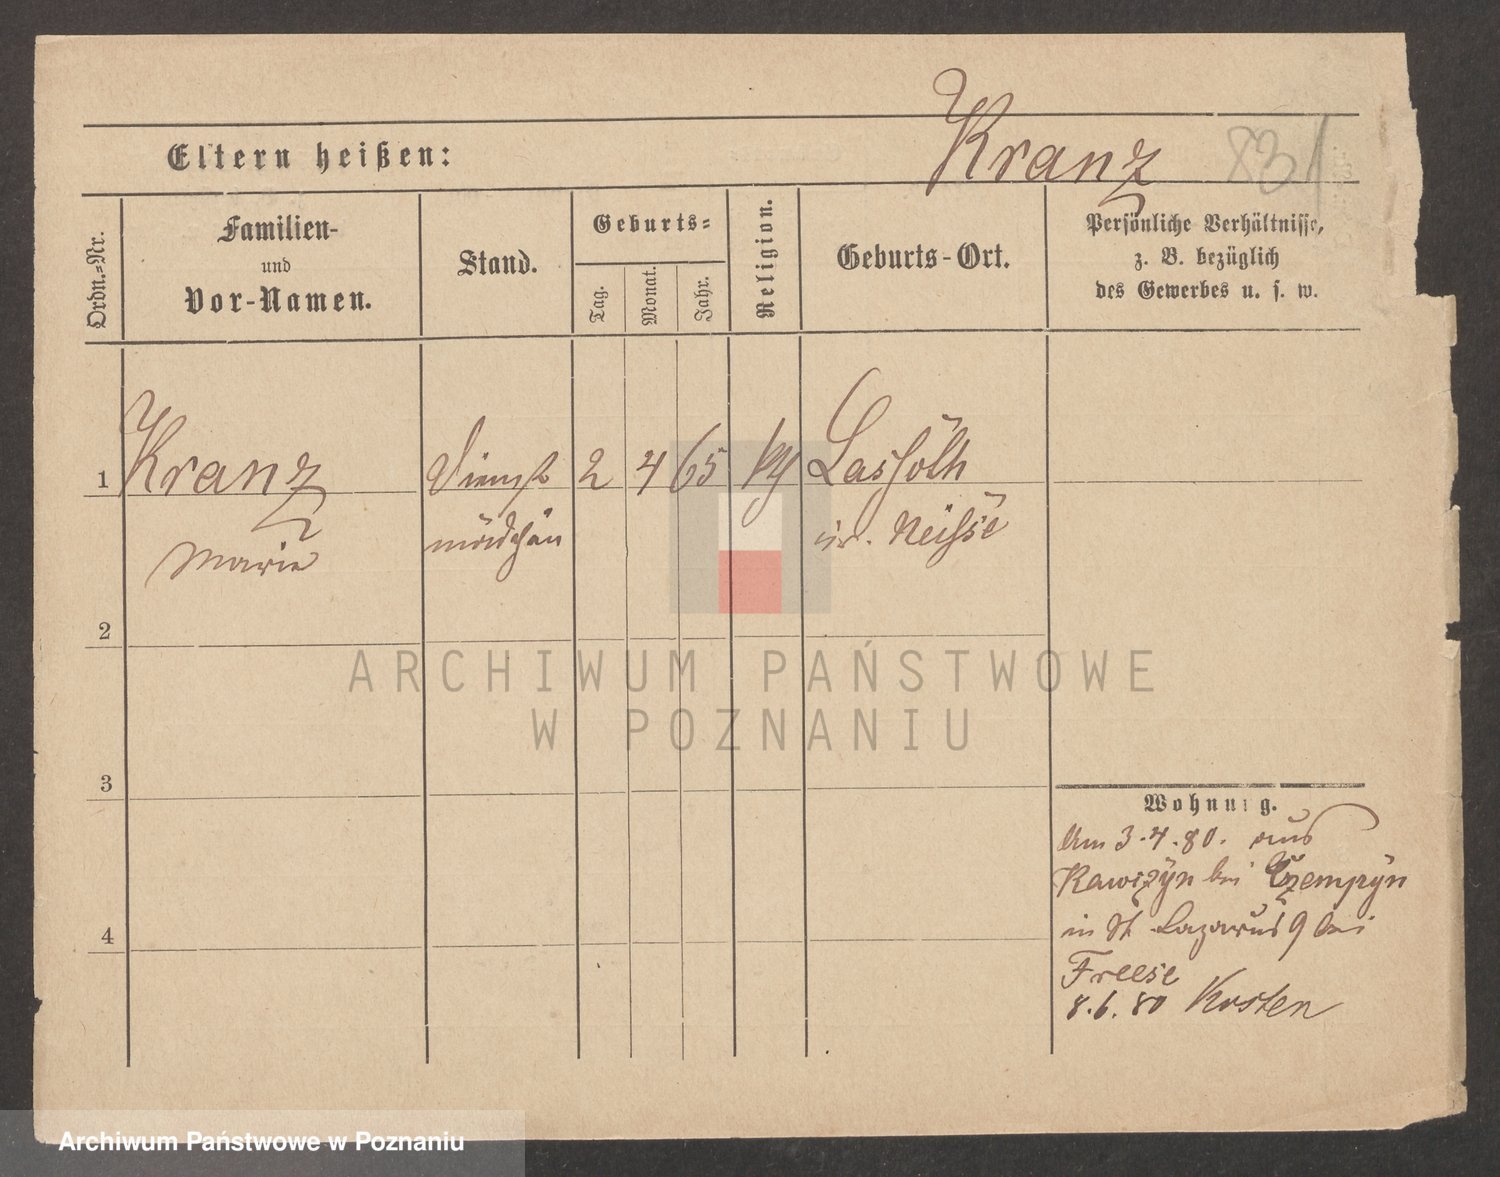 Kranz 831
Eltern heißen:
Ordn.-Nr.
Familien-
und
Vor-Namen.
Stand.
Geburts-
Tag.
Monat.
Jahr.
Religion.
Geburts-Ort.
Persönliche Verhältnisse,
z. B. bezüglich
des Gewerbes u. s. w.
1 Kranz Dienst 2 4 65 kth Lassoth
Marie mädchen Kr. Neisse
2
3
4
Wohnung.
Am 3.4.80. aus
Rawczyn bei Czempyn
in St Lazarus 9 bei
Freese
8.6.80 Kosten
ARCHIWUM PAŃSTWOWE
W POZNANIU
Archiwum Państwowe w Poznaniu